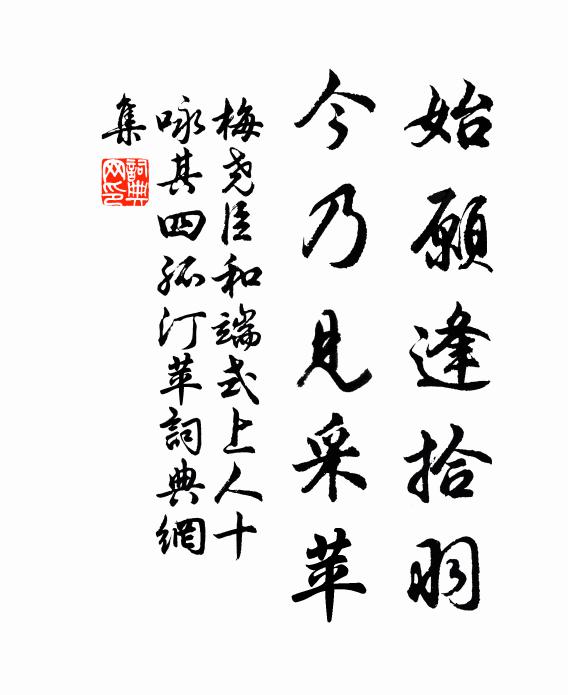 始願逢拾羽
今乃見采苹
梅尧臣和端式上人十
咏其四孤汀苹詞典網
集
詞典
网印